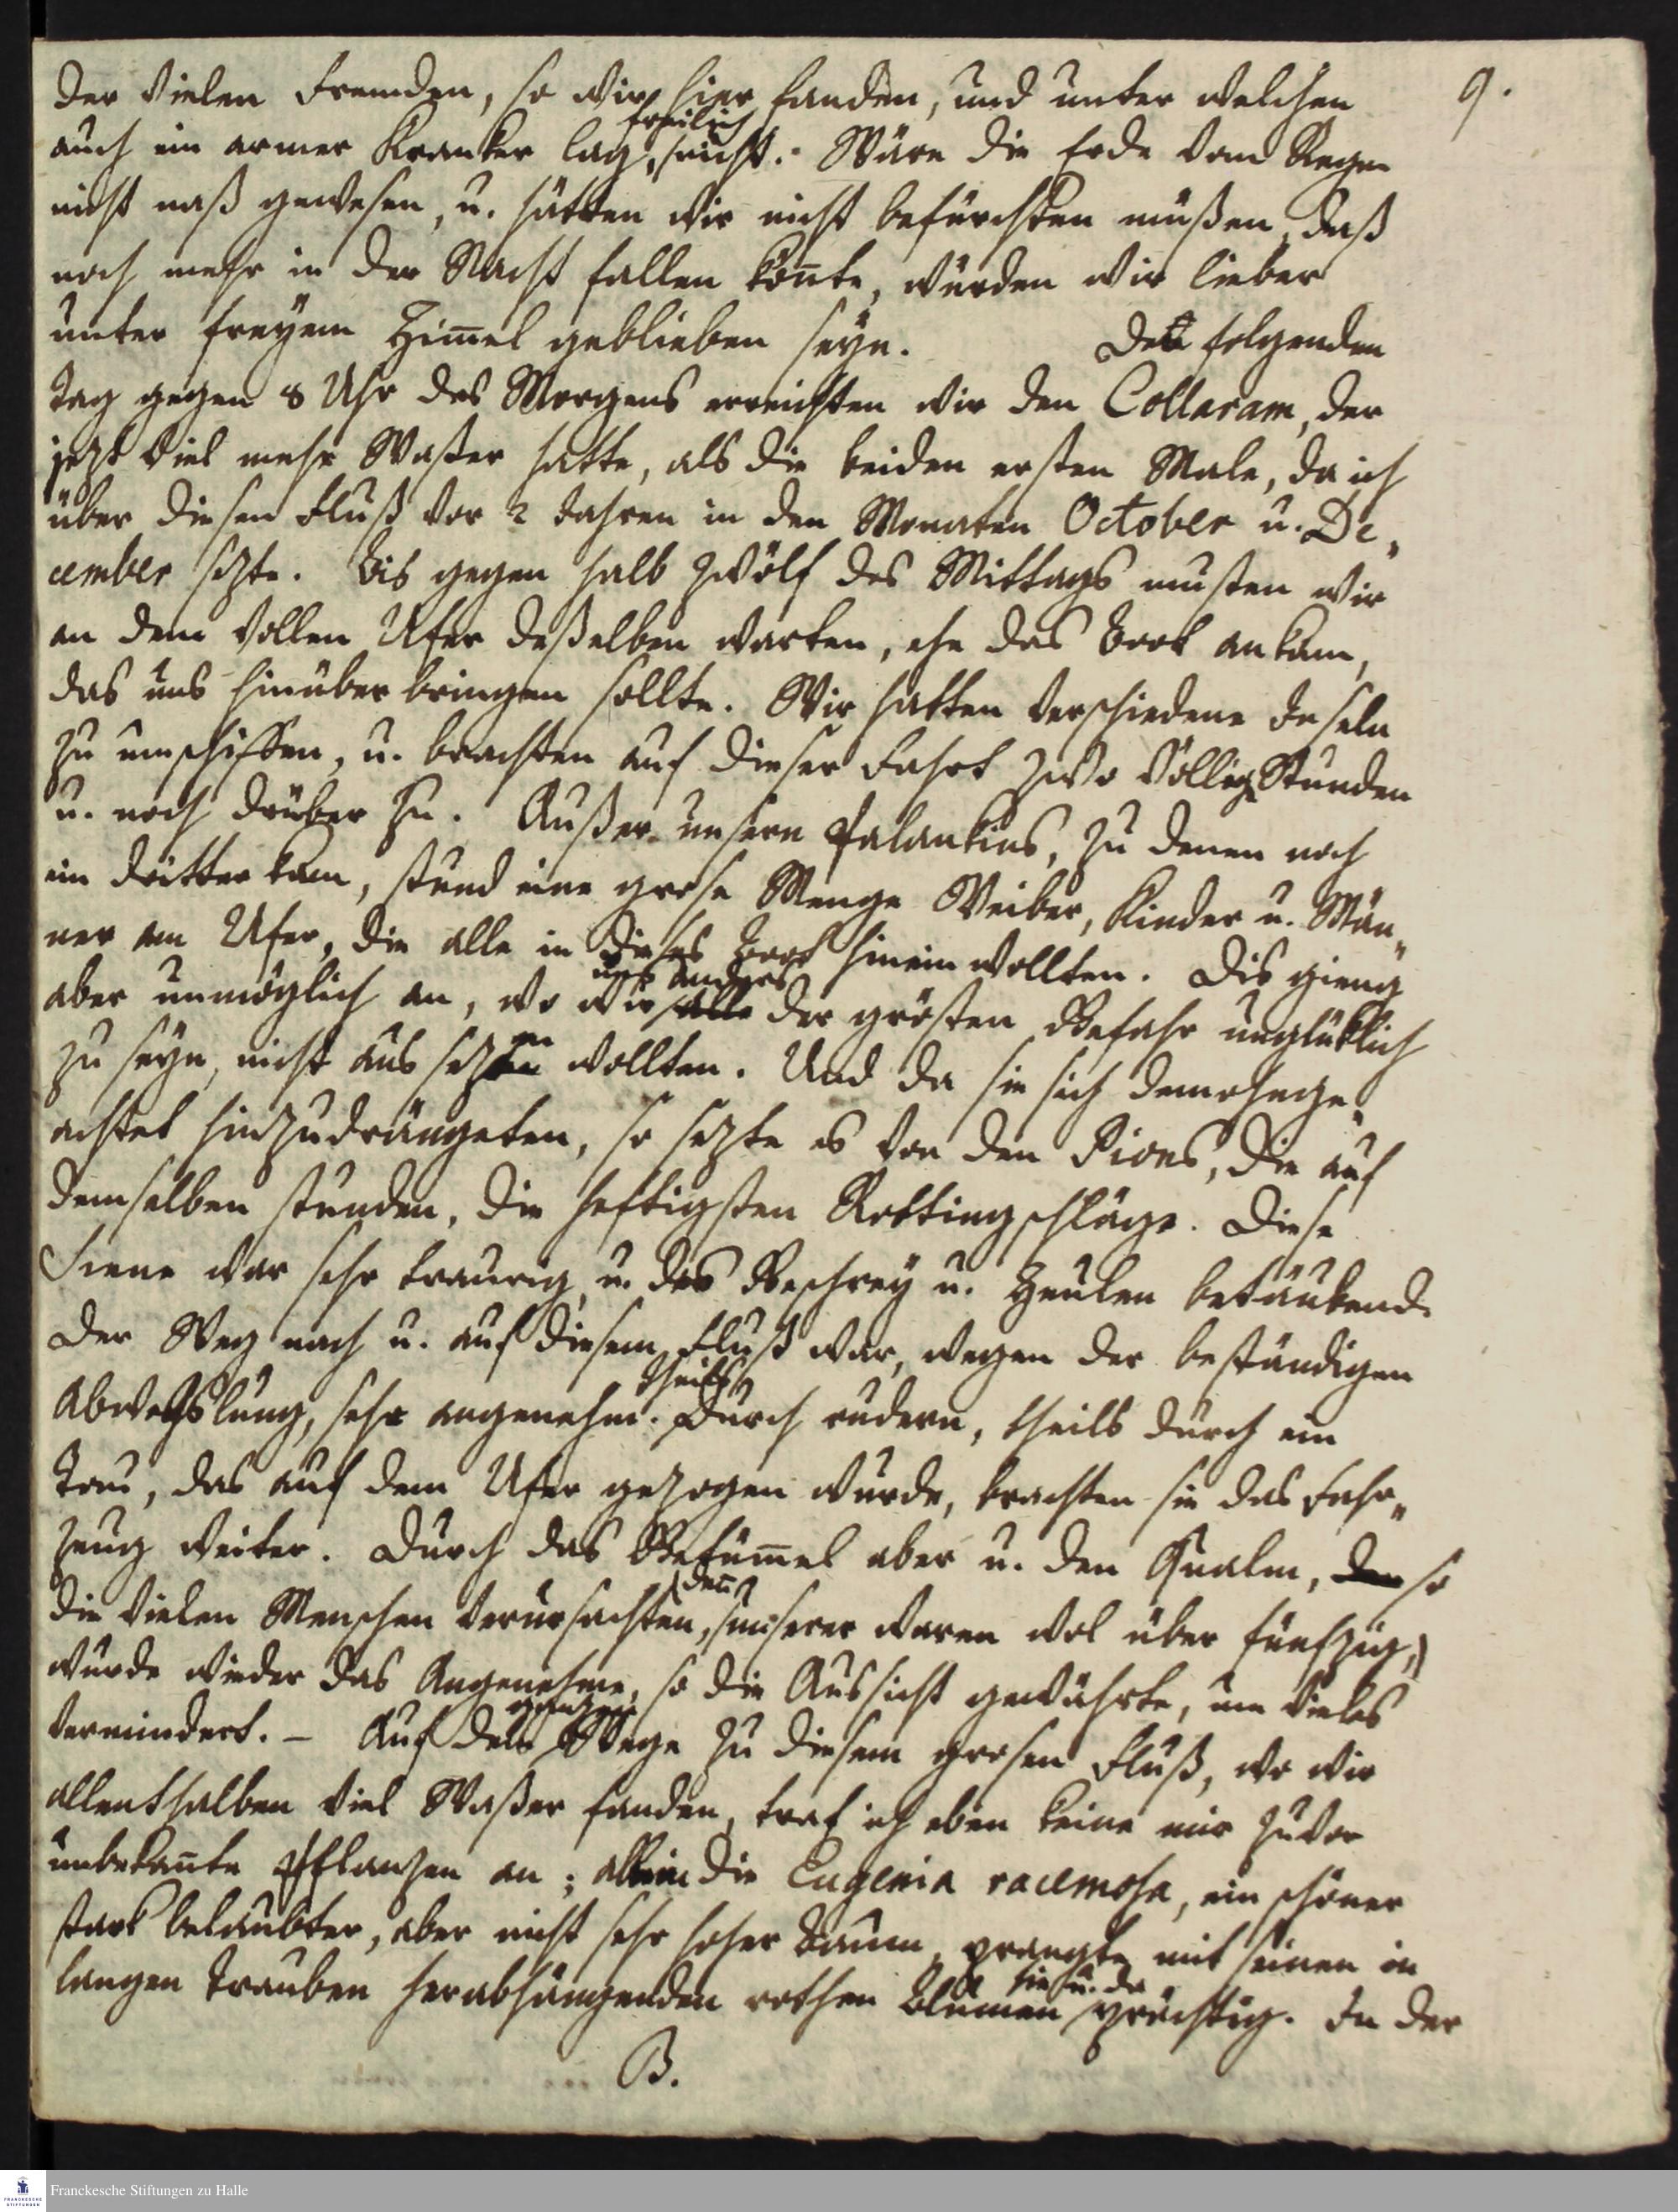 9.
der vielen Fremden, so wir hier fanden, und unter welchen
freilich
auch ein armer Kranker lag, nicht. Wäre die Erde vom Regen
nicht naß gewesen, u. hätten wir nicht befürchten müßen, daß
noch mehr in der Nacht fallen kön̄te, würden wir lieber
unter freyem Him̄el geblieben seyn. Den folgenden
Tag gegen 8 Uhr des Morgens erreichten wir den Collaram, der
jezt viel mehr Waßer hatte, als die beiden ersten Male, da ich
über diesen Fluß vor 2 Jahren in den Monaten October u. De„
cember sezte. Bis gegen halb zwölf des Mittags musten wir
an dem vollen Ufer deßelben warten, ehe das Boot ankam,
das uns hinüber bringen sollte. Wir hatten verschiedene Inseln
zu umschiffen, u. brachten auf dieser Fahrt zwo völlige Stunden
u. noch drüber zu. Außer unsern Palankins, zu denen noch
ein dritter kam, stund eine grose Menge Weiber, Kinder u. Män„
ner am Ufer, die alle in dieses Boot hinein wollten. Dis gieng
uns anders
aber unmöglich an, wo wir alle der grösten Gefahr unglüklich
zu seyn, nicht aus sezen wollten. Und da sie sich demohnge„
achtet hinzudrängeten, so sezte es von den Pions, die auf
demselben stunden, die heftigsten Rottingschläge. Diese
Scene war sehr traurig, u. das Geschrey u. Heulen betäubend.
Der Weg nach u. auf diesem Fluß war, wegen der beständigen
theils
Abwechslung, sehr angenehm. Durch rudern, theils durch ein
Tau, das auf dem Ufer gezogen wurde, brachten sie das Fahr„
zeug weiter. Durch das Getüm̄el aber u. den Qualm, den so
(den̄
die vielen Menschen verursachten, unserer waren wol über funfzig,)
wurde wieder das Angenehme, so die Aussicht gewährte, um vieles
ganzen
vermindert. – Auf dem Wege zu diesem grosen Fluß, wo wir
allenthalben viel Waßer fanden, traf ich eben keine mir zuvor
unbekan̄te Pflanzen an; allein die Eugenia racemosa, ein schöner
stark belaubter, aber nicht sehr hoher Baum, prangte mit seinen in
hie u. da
langen Trauben herabhängenden rothen Blumen prächtig. In der
B.
Franckesche Stiftungen zu Halle